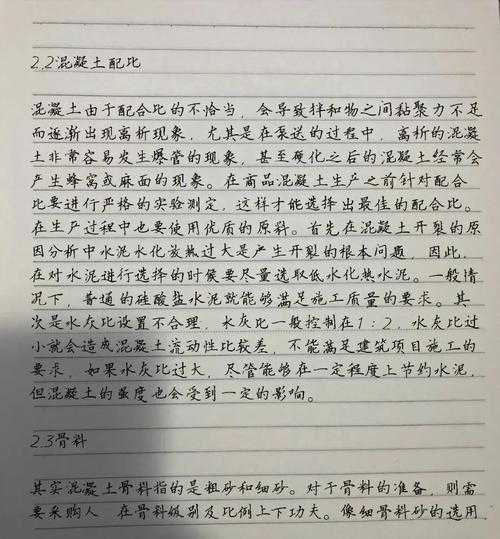 2.2混凝土配比
混凝土由于配合比的不恰当，会导致拌和物之间黏聚力不足
而逐渐出现离析现象，尤其是在泵送的过程中，离析的混凝
土非常容易发生爆管的现象，甚至硬化之后的混凝土经常会
产生蜂窝或麻面的现象。在商品混凝土生产之前针对配合
比要进行严格的实验测定，这样才能选择出最佳的配合比。
在生产过程中也要使用优质的原料。首先在混凝土开裂的原
因分析中水泥水化放热过大是产生开裂的根本问题，因此，
在对水泥进行选择的时候要尽量选取低水化热水泥。一般情
况下，普通的硅酸盐水泥就能够满足施工质量的要求。其
次是水灰比设置不合理，水灰比一般控制在1：2，水灰比过
小就会造成混凝土流动性比较差，不能满足建筑项目施工的
要求，如果水灰比过大，尽管能够在一定程度上节约水泥，
但混凝土的强度也会受到一定的影响。
2.3骨料
其实混凝土骨料指的是粗砂和细砂。对于骨料的准备，则需
要采购人 在骨料级别及比例上下功夫。像细骨料砂的选用